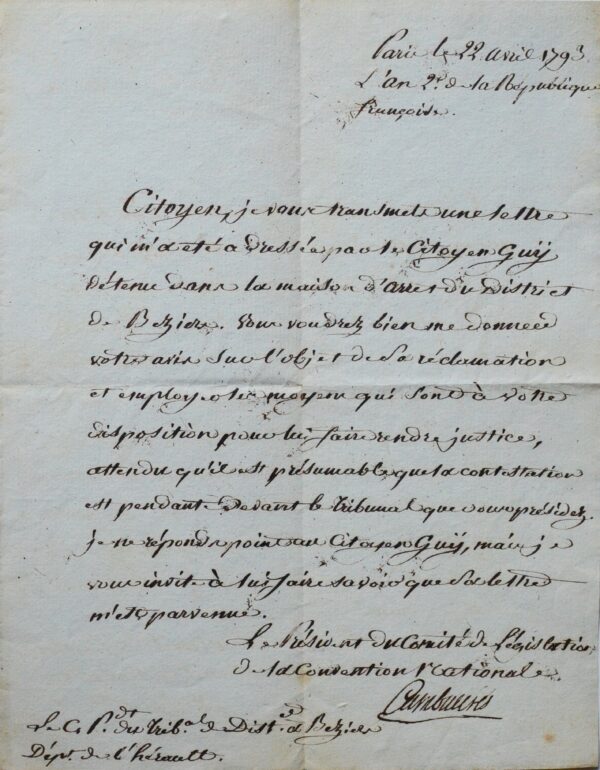 Paris le 22 avril 1793.
L'an 2d. de la République
françoise.
Citoyen, je vous transmets une lettre
qui m'a été adressée par le Citoyen Guÿ
détenu dans la maison d'arret du District
de Beziers. Vous voudrez bien me donner
votre avis sur l'objet de sa réclamation
et employer les moyens qui sont à votre
disposition pour lui faire rendre justice,
attendu qu'il est présumable que la contestation
est pendante devant le tribunal que vous présidez.
je ne réponds point au Citoyen Guÿ, mais je
vous invite à lui faire savoir que sa lettre
m'est parvenue.
Le Président du Comité de Législation
de la Convention Nationale.
Cambacérès
Le C. Pdt. du Tribal. de Dist. de Beziers
Dépt. de l'hérault.